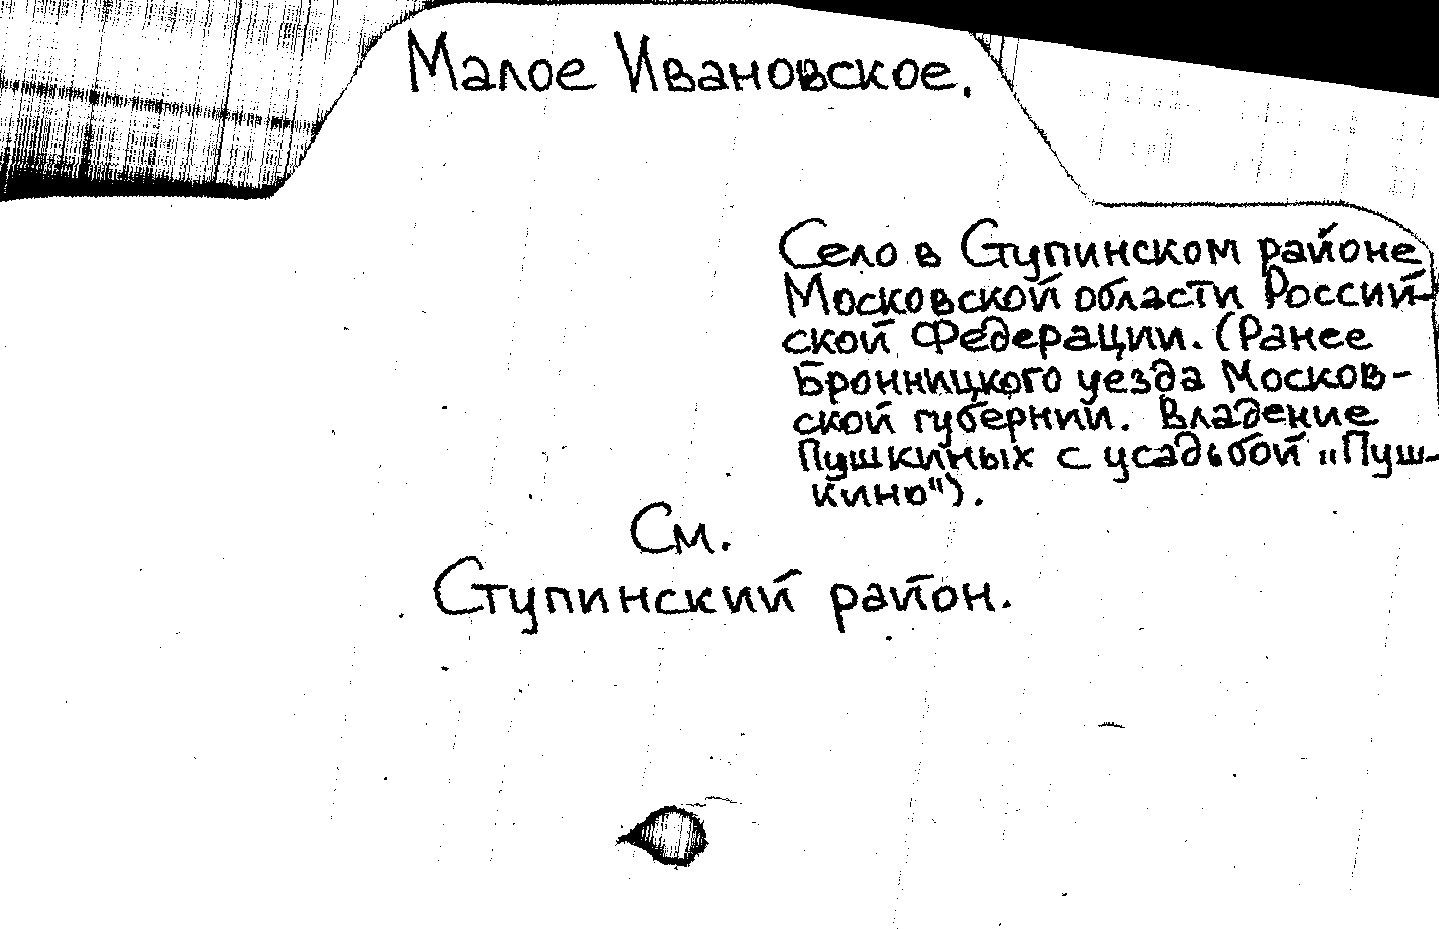 Малое Ивановское.
Село в Ступинском районе
Московской области Россий-
ской Федерации. (Ранее
Бронницкого уезда Москов-
ской губернии. Владение
Пушкиных с усадьбой „Пуш-
кино").
См.
Ступинский район.